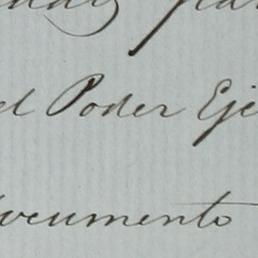 el Poder Eje
documento